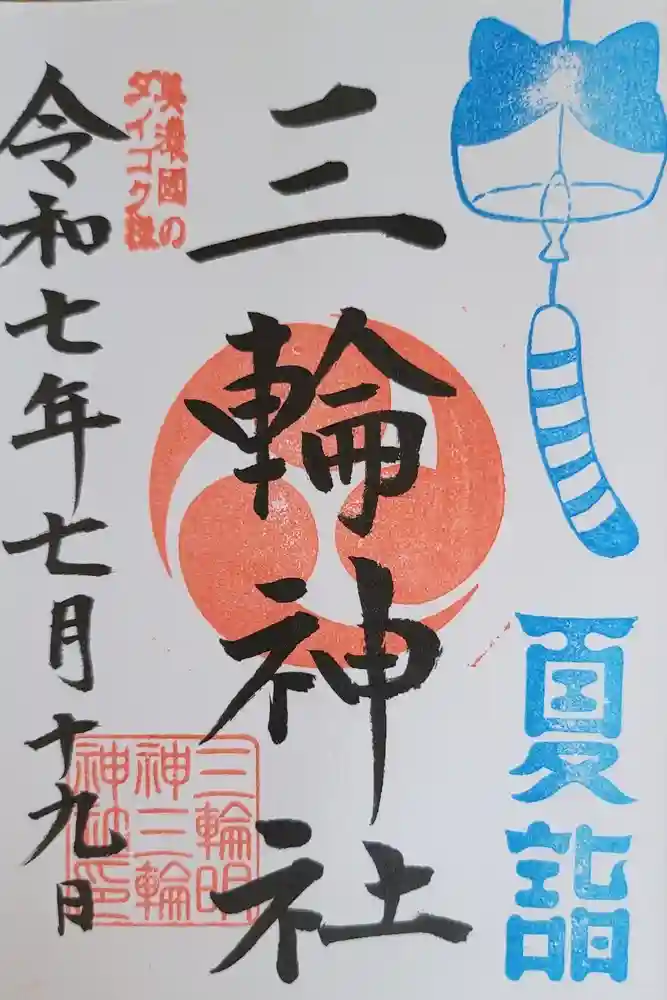 夏詣
三輪神社
美濃國の
ダイコク様
三輪明
神三輪
神社印
令和七年七月十九日